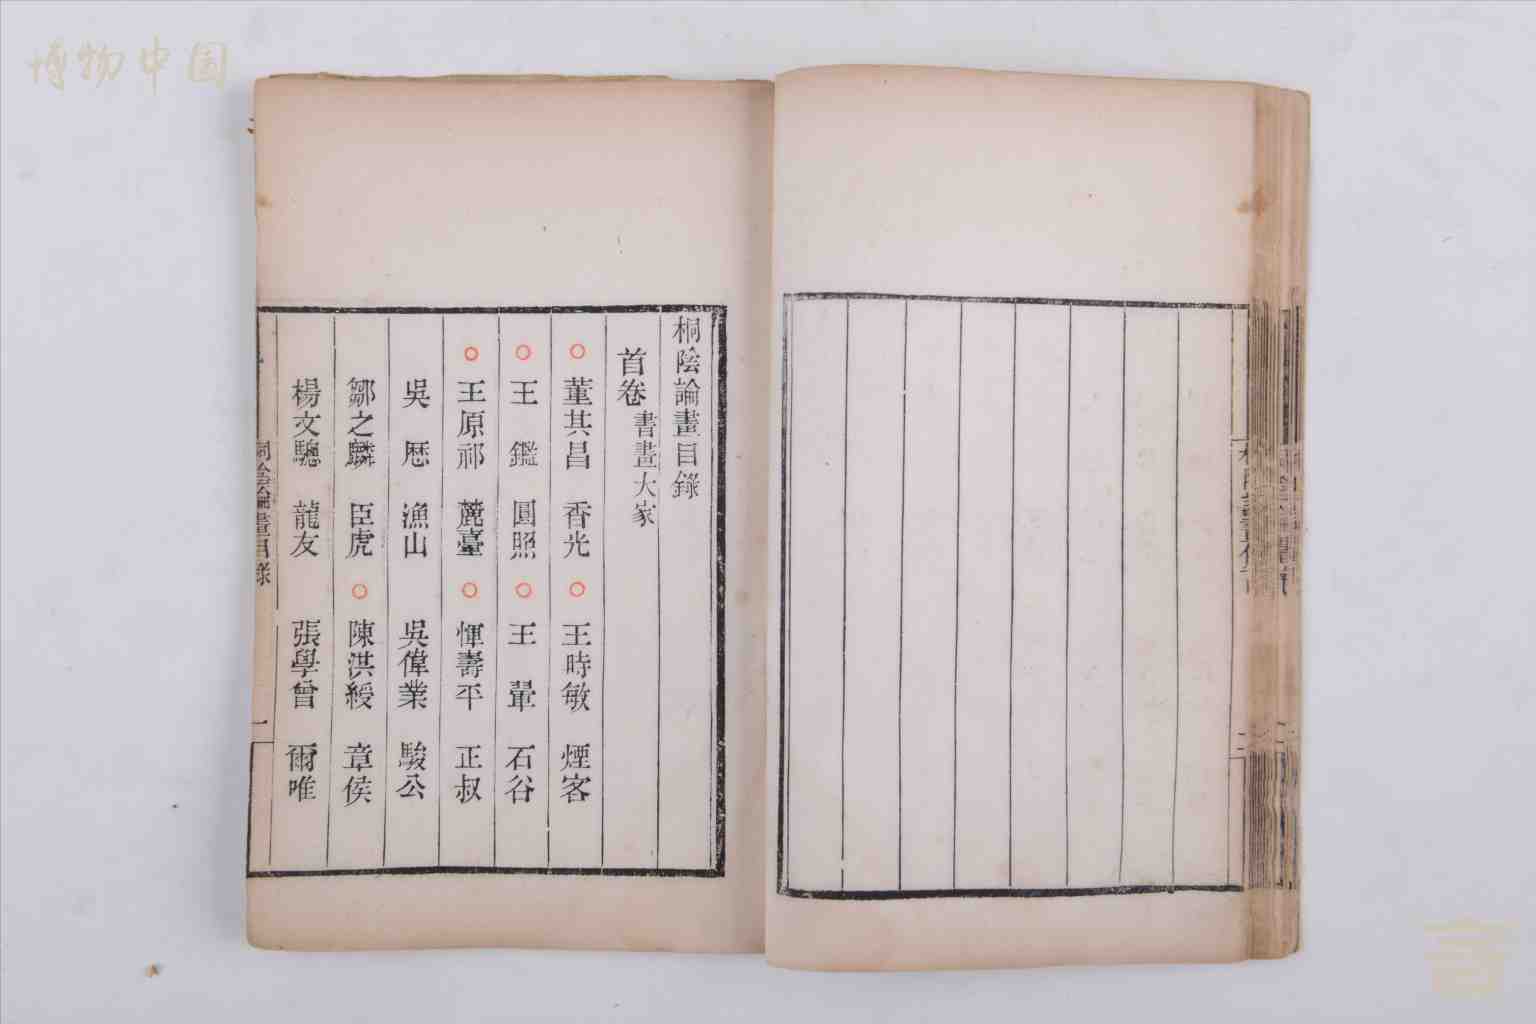 博物中国
桐陰論畫目錄
首卷 書畫大家
董其昌 香光 王時敏 煙客
王鑑 圓照 王翬 石谷
王原祁 麓臺 惲壽平 正叔
吳歷 漁山 吳偉業 駿公
鄒之麟 臣虎 陳洪綬 章侯
楊文驄 龍友 張學曾 爾唯
桐陰論畫目錄 一